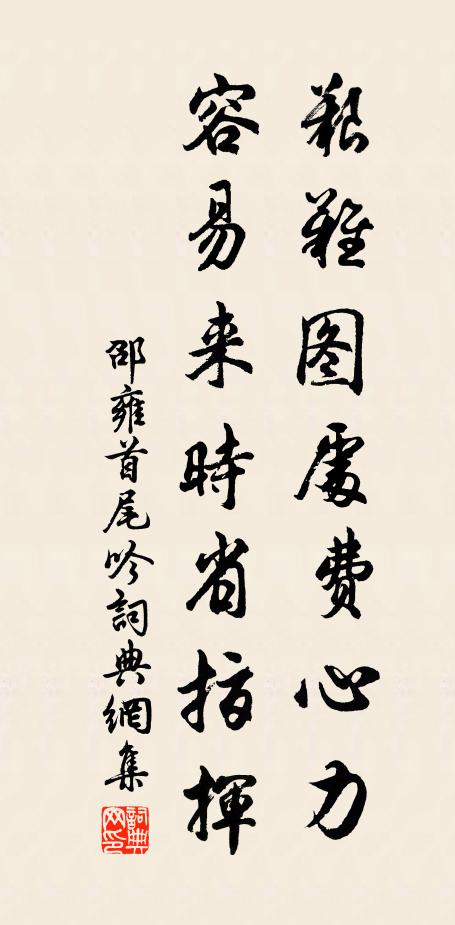 艱難图處费心力
容易来時省指揮
邵雍首尾吟詞典網集
詞典网印